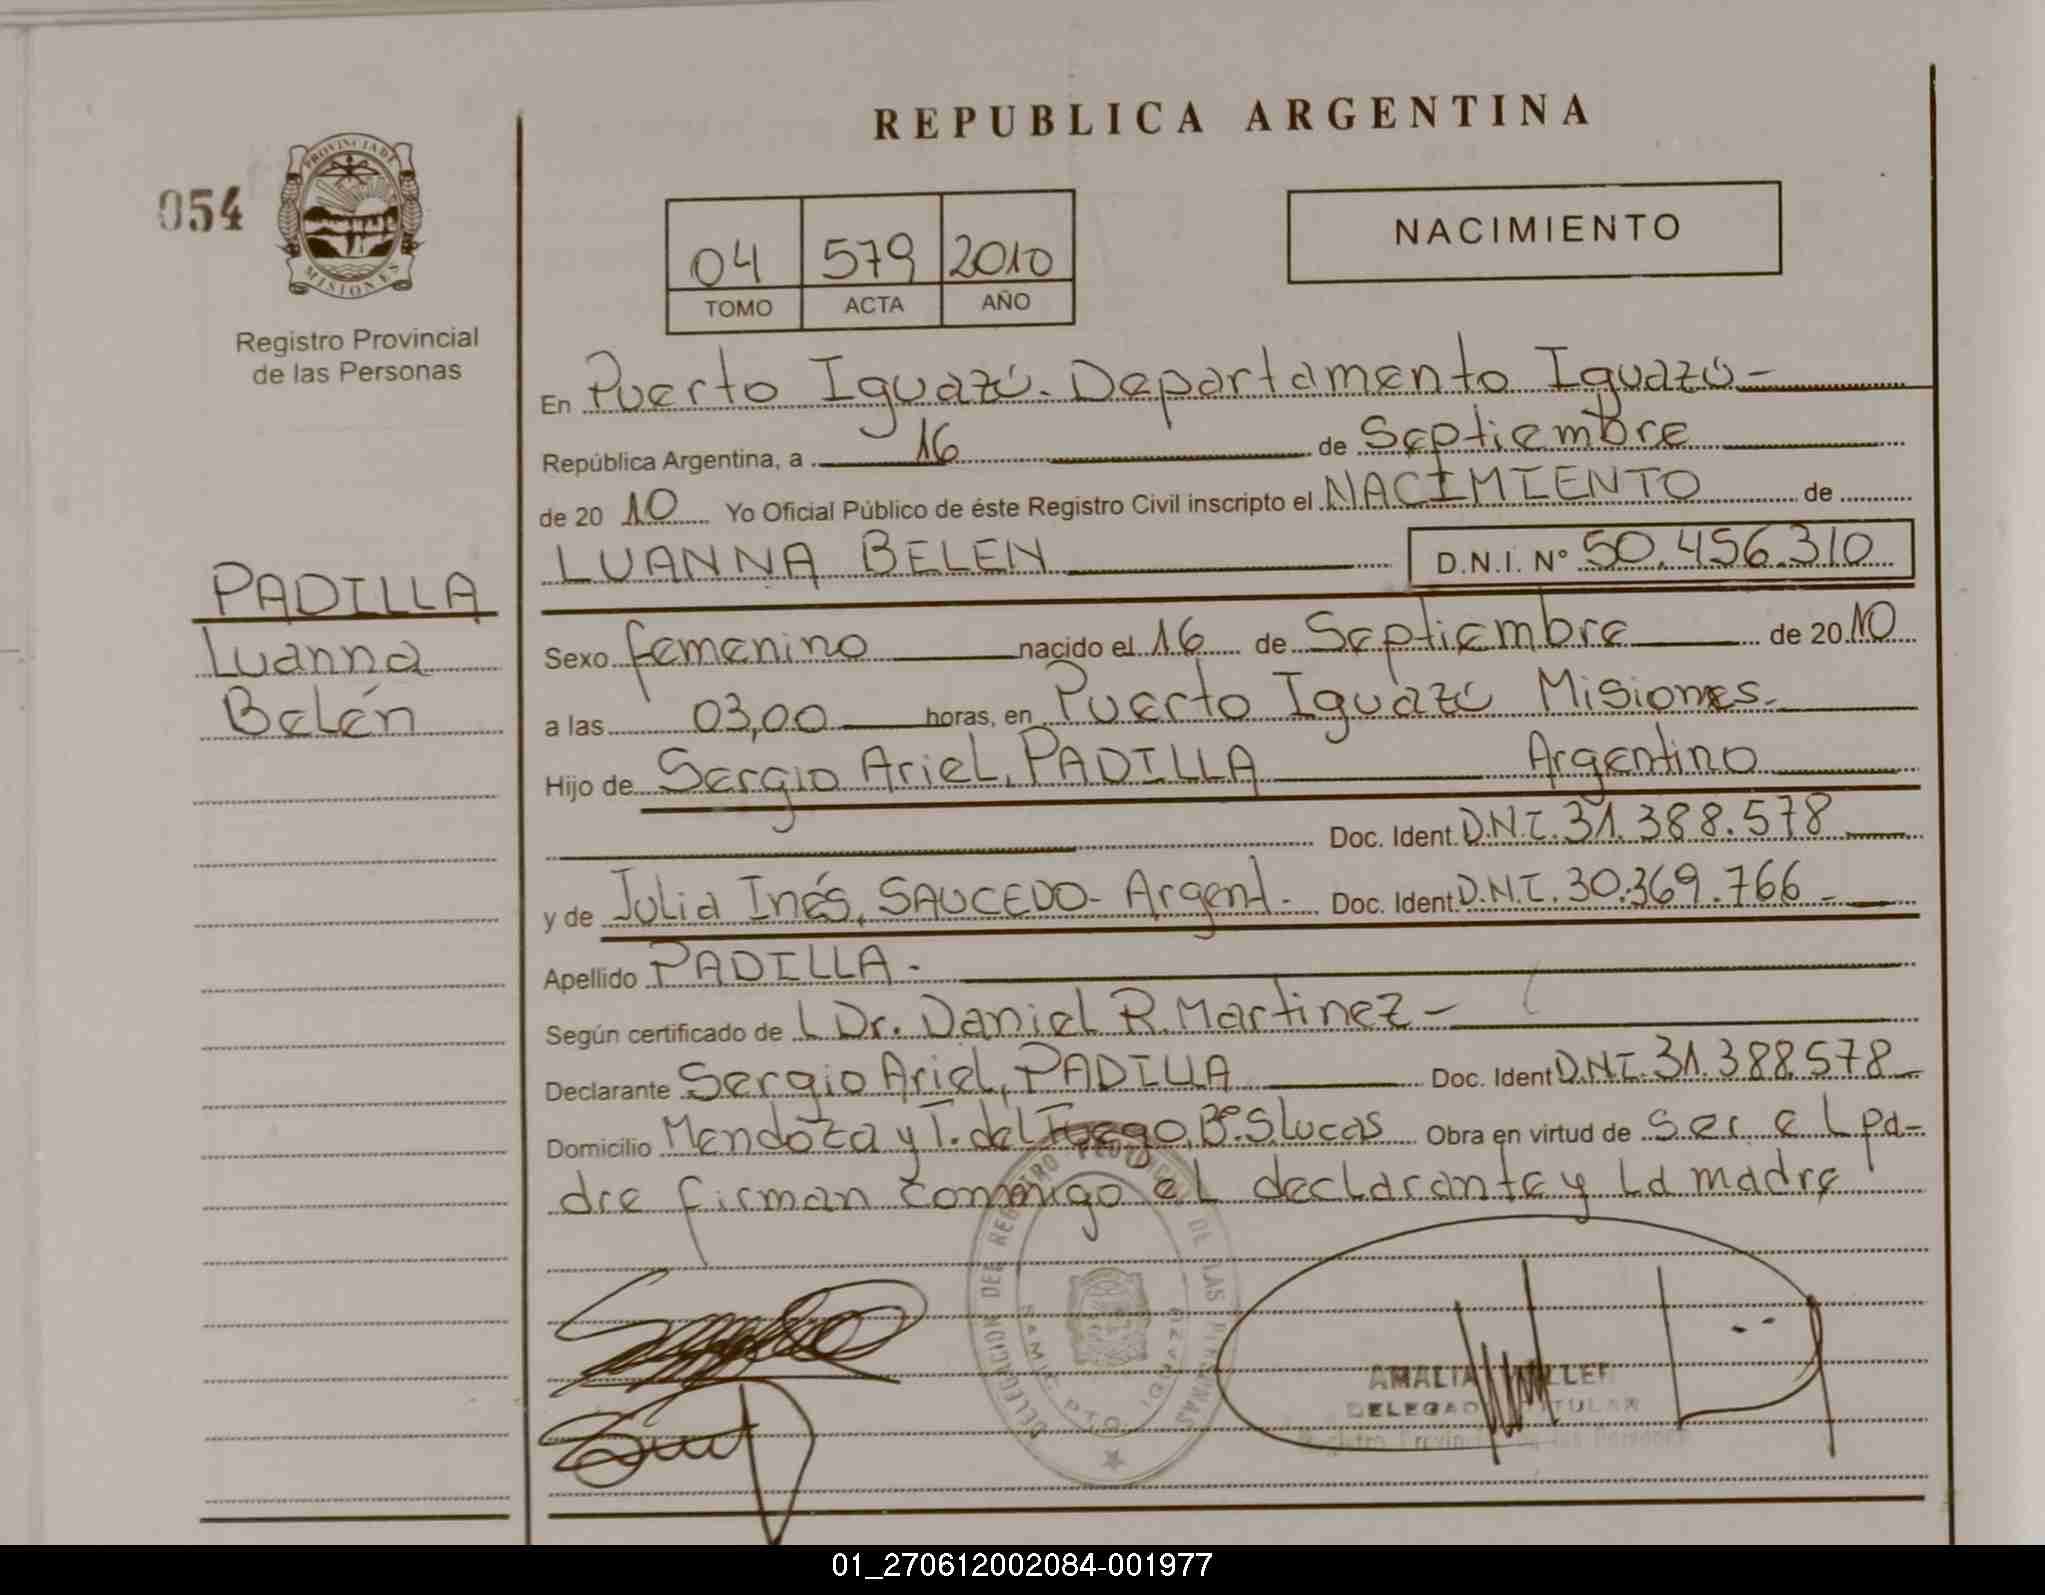 REPUBLICA ARGENTINA
054
PROVINCIA DE
MISIONES
Registro Provincial
de las Personas
04 579 2010
TOMO ACTA AÑO
NACIMIENTO
En Puerto Iguazú. Departamento Iguazú-
República Argentina, a 16 de Septiembre
de 20 10 Yo Oficial Público de éste Registro Civil inscripto el NACIMIENTO de
LUANNA BELEN D.N.I. Nº 50.456.310
PADILLA
Luanna
Belén
Sexo femenino nacido el 16 de Septiembre de 20 10
a las 03,00 horas, en Puerto Iguazú Misiones.
Hijo de Sergio Ariel, PADILLA Argentino
Doc. Ident. D.N.I. 31.388.578
y de Julia Inés, SAUCEDO- Argent. Doc. Ident. D.N.I. 30.369.766
Apellido PADILLA.
Según certificado de L Dr. Daniel R. Martinez-
Declarante Sergio Ariel, PADILLA Doc. Ident D.N.I. 31.388.578
Domicilio Mendoza y T. del Fuego, Bº S. Lucas Obra en virtud de ser el pa-
dre firman conmigo el declarante y la madre
DELEGACION DEL REGISTRO PROVINCIAL DE LAS PERSONAS
AMALIA
DELEGAD TITULAR
01_270612002084-001977